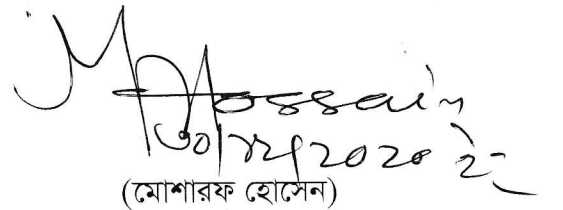 MHossain
৩০/১২/২০২০ ইং
(মোশারফ হোসেন)